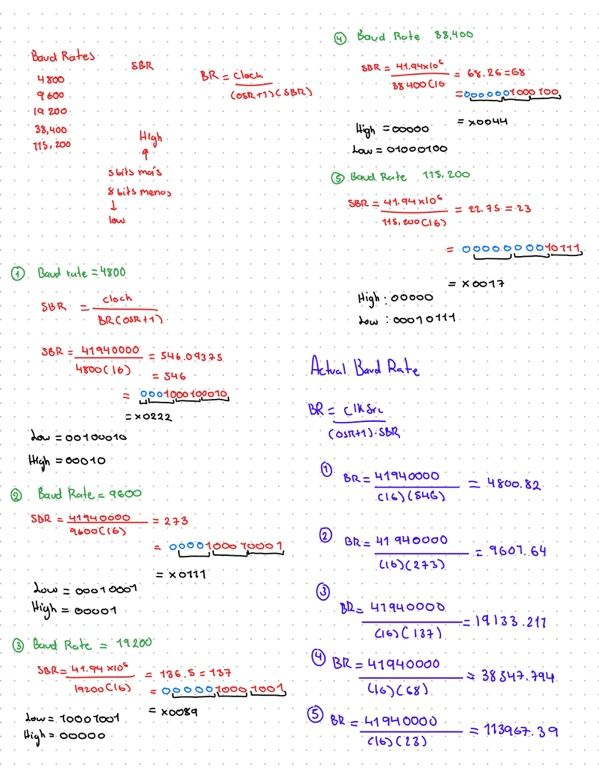 Baud Rates
4800
9600
19200
38,400
115,200
SBR
BR = clock
(OSR+1)(SBR)
High
↑
5 bits más
8 bits menos
↓
low
① Baud rate = 4800
SBR = clock
BR(OSR+1)
SBR = 41940000 = 546.09375
4800(16) = 546
= 0001000100010
= x0222
Low = 00100010
High = 00010
② Baud Rate = 9600
SBR = 41940000 = 273
9600(16)
= 0000100010001
= x0111
Low = 00010001
High = 00001
③ Baud Rate = 19200
SBR = 41.94 x10⁶ = 136.5 = 137
19200(16) = 0000010001001
= x0089
Low = 10001001
High = 00000
④ Baud Rate 38,400
SBR = 41.94x10⁶ = 68.26 = 68
38400(16
= 0000001000100
= x0044
High = 00000
Low = 01000100
⑤ Baud Rate 115,200
SBR = 41.94 x10⁶ = 22.75 = 23
115,200(16)
= 0000000010111
= x0017
High : 00000
Low : 00010111
Actual Baud Rate
BR = clksrc
(OSR+1)·SBR
① BR = 41940000 = 4800.82
(16)(546)
② BR = 41940000 = 9607.64
(16)(273)
③ BR = 41940000 = 19133.211
(16)(137)
④ BR = 41940000 = 38547.794
(16)(68)
⑤ BR = 41940000 = 113967.39
(16)(23)